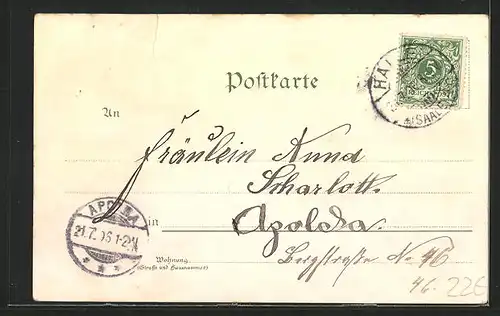 Postkarte
HALLE
*(SAALE)
5
An
Fräulein Anna
Scharlott.
APOLDA
21.7. 1-2N
in Apolda.
Wohnung
(Straße und Hausnummer)
Bergstraße No 46
46. 226